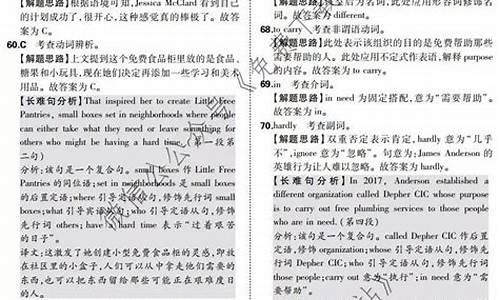 【解题思路】根据语境可知,Jessica McClard 看到自己
的计划成功了,很开心,这种感觉真的棒极了。故答
案为 C。
60.C 考查动词辨析。
【解题思路】上文提到这个免费食品柜里放的是食品、
糖果和小玩具,现在她们决定再添加一些学习和美术
用品。故答案为 C。
【长难句分析】That inspired her to create Little Free
Pantries, small boxes set in neighborhoods where people
can either take what they need or leave something for
others who might be having a hard time. (第一段第
二句)
分析:该句是一个复合句。small boxes 作 Little Free
Pantries 的同位语;set in neighborhoods 是 small boxes
的后置定语;where 引导定语从句,修饰先行词 small
boxes;what 引导宾语从句;who 引导定语从句,修饰先
行词 others;have a hard time 表示“过着艰苦
的日子”。
译文:这激发了她创建小型免费食品柜的灵感,即放
在社区里的小盒子,人们可以从中拿走他们需要的东
西,也可以把东西留给那些可能正在艰难度日
的人。
词。故答案为 different。
68.to carry 考查非谓语动词。
【解题思路】此处表示该组织的目的是免费帮助那些
需要帮助的人。此处应用不定式作表语,解释 purpose
的内容。故答案为 to carry。
69.in 考查介词。
【解题思路】in need 为固定搭配,意为“需要帮助”。
故答案为 in。
70.hardly 考查副词。
【解题思路】双重否定表示肯定,hardly 意为“几乎
不”,ignore 意为“忽略”。句意为:James Anderson 的
英雄行为让人难以忽略。故答案为 hardly。
【长难句分析】In 2017, Anderson established a
different organization called Depher CIC whose purpose
is to carry out free plumbing services to those people
who are in need. (第四段)
分析:该句是一个复合句。called Depher CIC 作后置
定语,修饰 organization;whose 引导定语从句,修饰先
行词 Depher CIC;who 引导定语从句,修饰先行词
those people;carry out 意为“执行”;in need 意为“需
要帮助”。